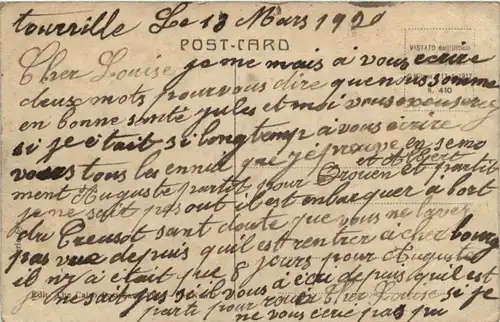 tourville Le 13 Mars 1920
POST-CARD
VISTATO
N. 410
Cher Louise je me mais a vous écrire
deux mots pour vous dire que nous somme
en bonne santé jules et moi vous
si je était si longtemp a vous écrire
vous tous les ennui que j'éprouve en se mo
ment Auguste partot pour Rouen et partit
je ne sait pas out il est embarquer a bort
du Creusot sant doute que vous ne lavez
pas vue depuis quil est rentrer a cherbourg
il n'y a était que 8 jours pour Auguste
je ne sait pas si il vous a écri depuis quil est
parti pour rouen Cher Louise si je
ne vous écrie pas pu